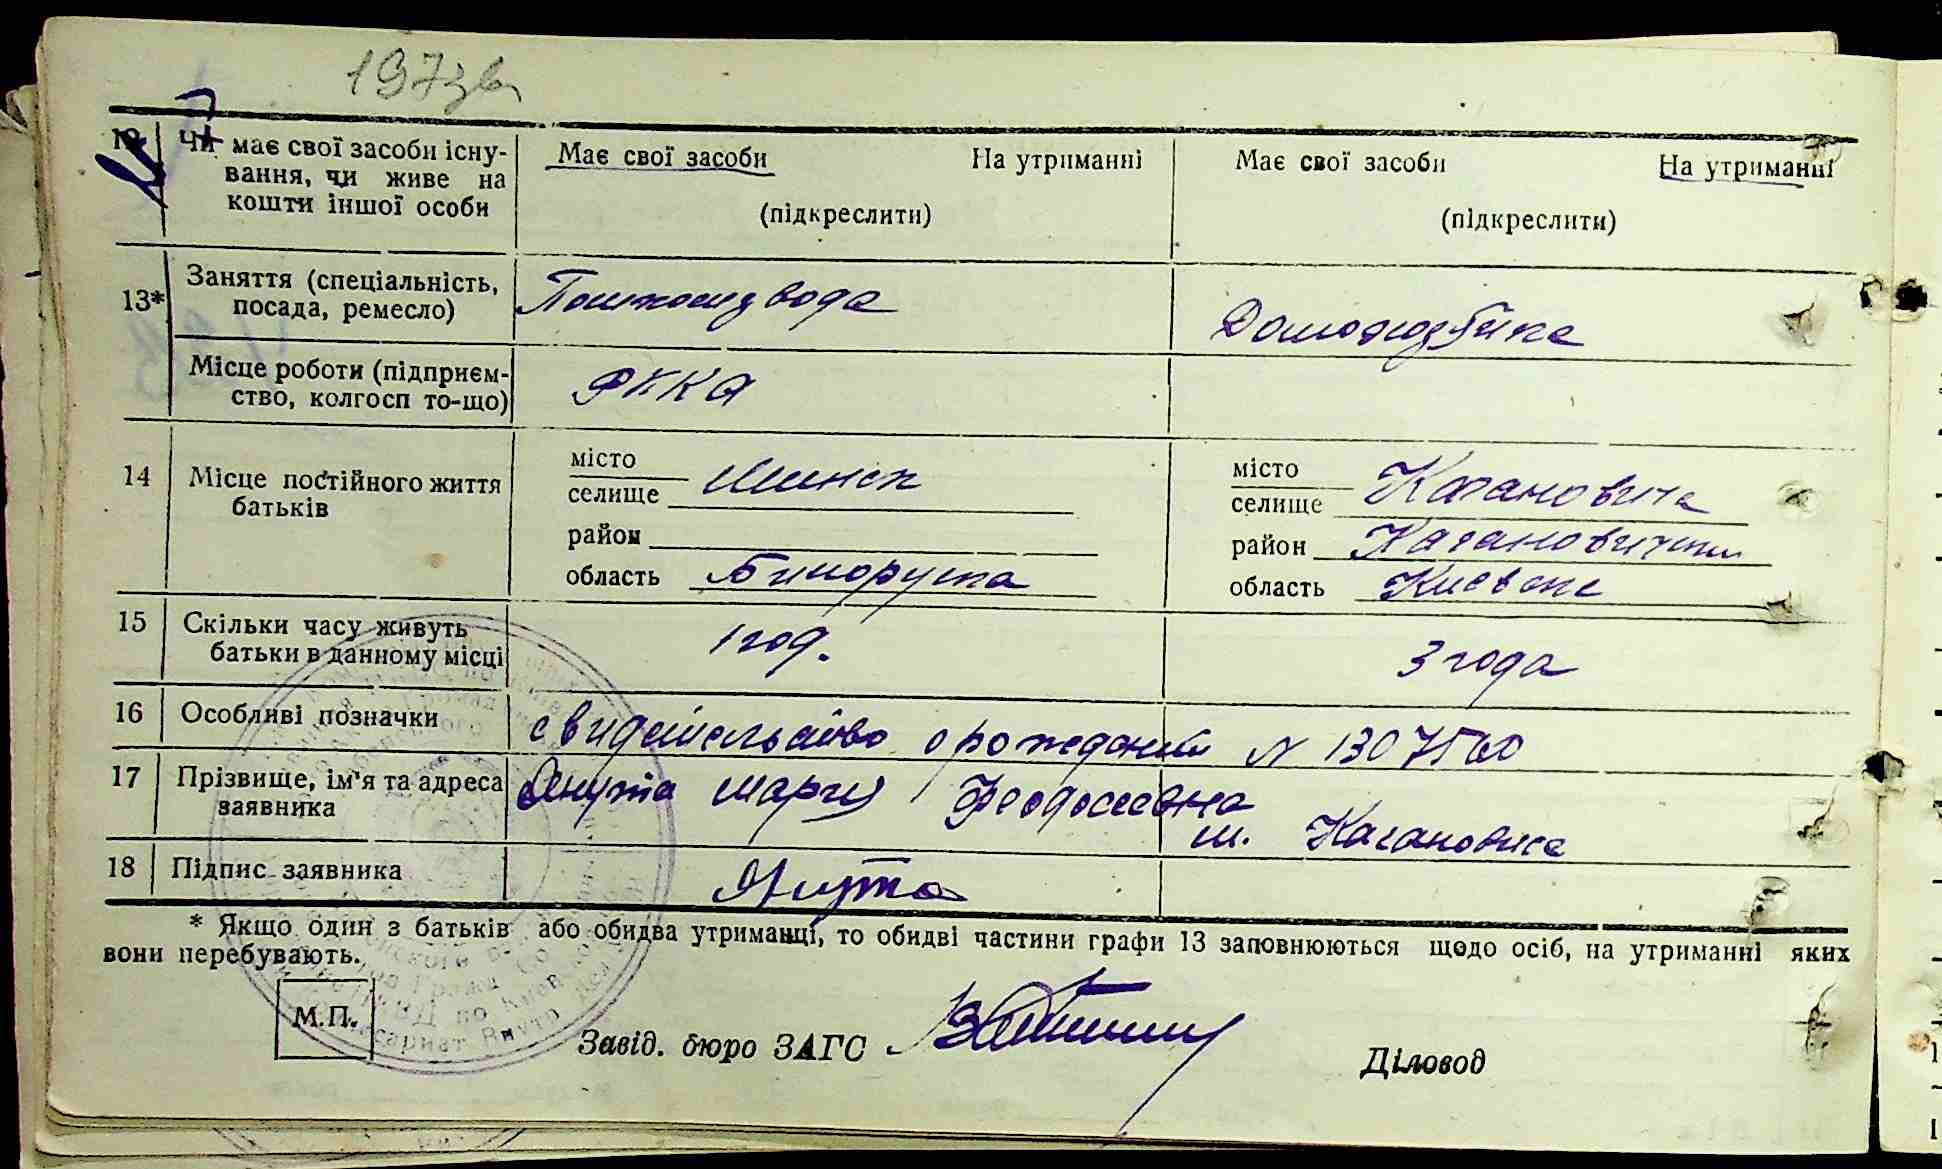 197зв
12 Чи має свої засоби існу-
вання, чи живе на
кошти іншої особи
Має свої засоби На утриманні
(підкреслити)
Має свої засоби На утриманні
(підкреслити)
13* Заняття (спеціальність,
посада, ремесло)
Помкомзвода
Домохозяйка
Місце роботи (підприєм-
ство, колгосп то-що)
РККА
14 Місце постійного життя
батьків
місто
селище Минск
район
область Білорусия
місто
селище Кагановича
район Кагановичский
область Киевск
15 Скільки часу живуть
батьки в данному місці
1 год.
3 года
16 Особливі позначки
свидетельство о рождении N 1307560
17 Прізвище, ім'я та адреса
заявника
Янута Мария Феодосеевна
м. Кагановича
18 Підпис заявника
Янута
* Якщо один з батьків або обидва утриманці, то обидві частини графи 13 заповнюються щодо осіб, на утриманні яких
вони перебувають.
М.П.
Завід. бюро ЗАГС
Діловод